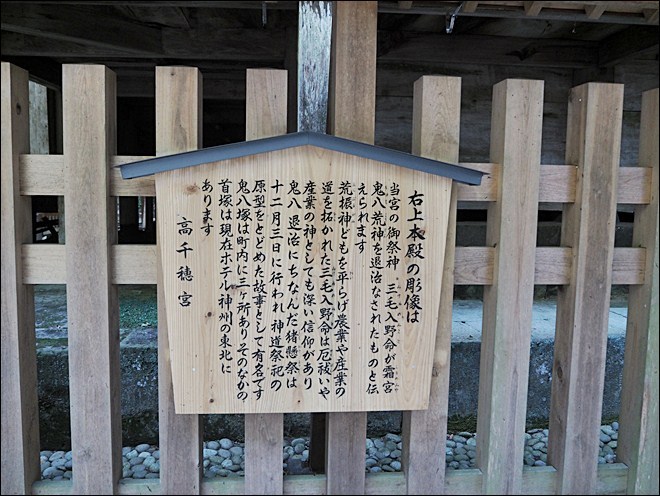 右上本殿の彫像は
当宮の御祭神 三毛入野命が霜宮
鬼八荒神を退治なされたものと伝
えられます
荒振神どもを平らげ農業や産業の
道を拓かれた三毛入野命は厄祓いや
産業の神としても深い信仰があり
鬼八退治にちなんだ猪懸祭は
十二月三日に行われ 神道祭祀の
原型をとどめた故事として有名です
鬼八塚は町内に三ヶ所ありそのなかの
首塚は現在ホテル神州の東北に
あります
高千穂宮